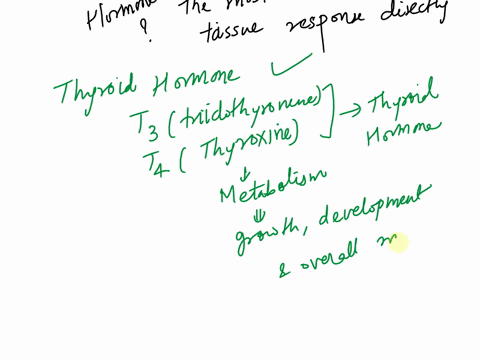 Hormone ? The mos
tissue response directly
Thyroid Hormone
T3 (triidothyronine)
T4 (Thyroxine)
→ Thyroid
Hormone
↓
Metabolism
⇓
growth, development
& overall m